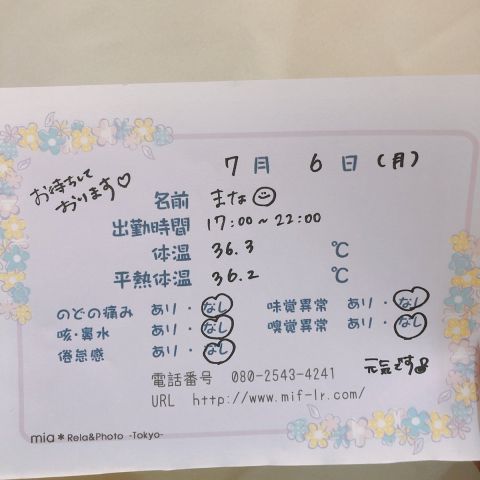 7月 6日 (月)
お待ちして
おります♡
名前 まな☺
出勤時間 17:00~22:00
体温 36.3 ℃
平熱体温 36.2 ℃
のどの痛み あり・なし 味覚異常 あり・なし
咳・鼻水 あり・なし 嗅覚異常 あり・なし
倦怠感 あり・なし
電話番号 080-2543-4241 元気です
URL http://www.mif-lr.com/
mia＊Rela&Photo -Tokyo-